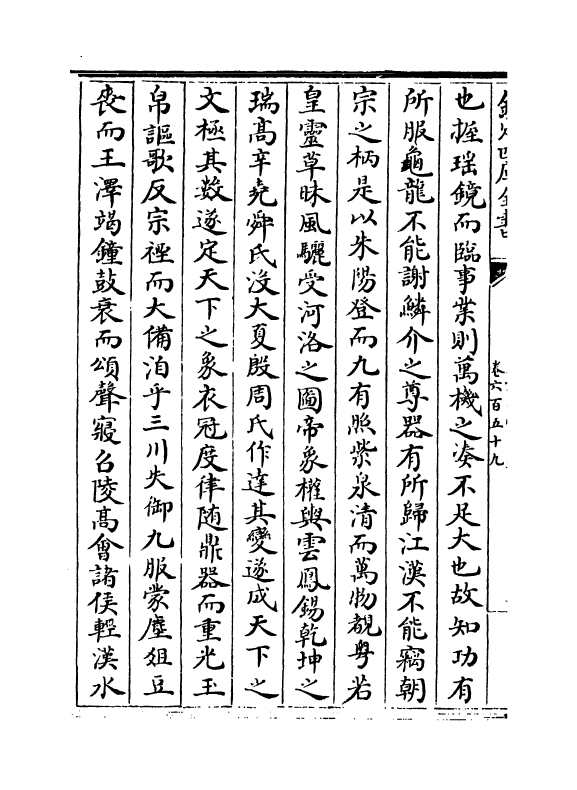 欽定四庫全書
卷六百五十九
也握瑶鏡而臨事業則萬機之湊不足大也故知功有
所服龜龍不能謝鱗介之尊器有所歸江漢不能竊朝
宗之柄是以朱陽登而九有照紫泉清而萬物覩粤若
皇靈草昧風驪受河洛之圖帝象權輿雲鳳錫乾坤之
瑞高辛堯舜氏没大夏殷周氏作達其變遂成天下之
文極其數遂定天下之象衣冠度律随鼎器而重光玉
帛謳歌反宗禋而大備洎乎三川失御九服蒙塵俎豆
喪而王澤竭鐘鼔衰而頌聲寢召陵高會諸侯輕漢水